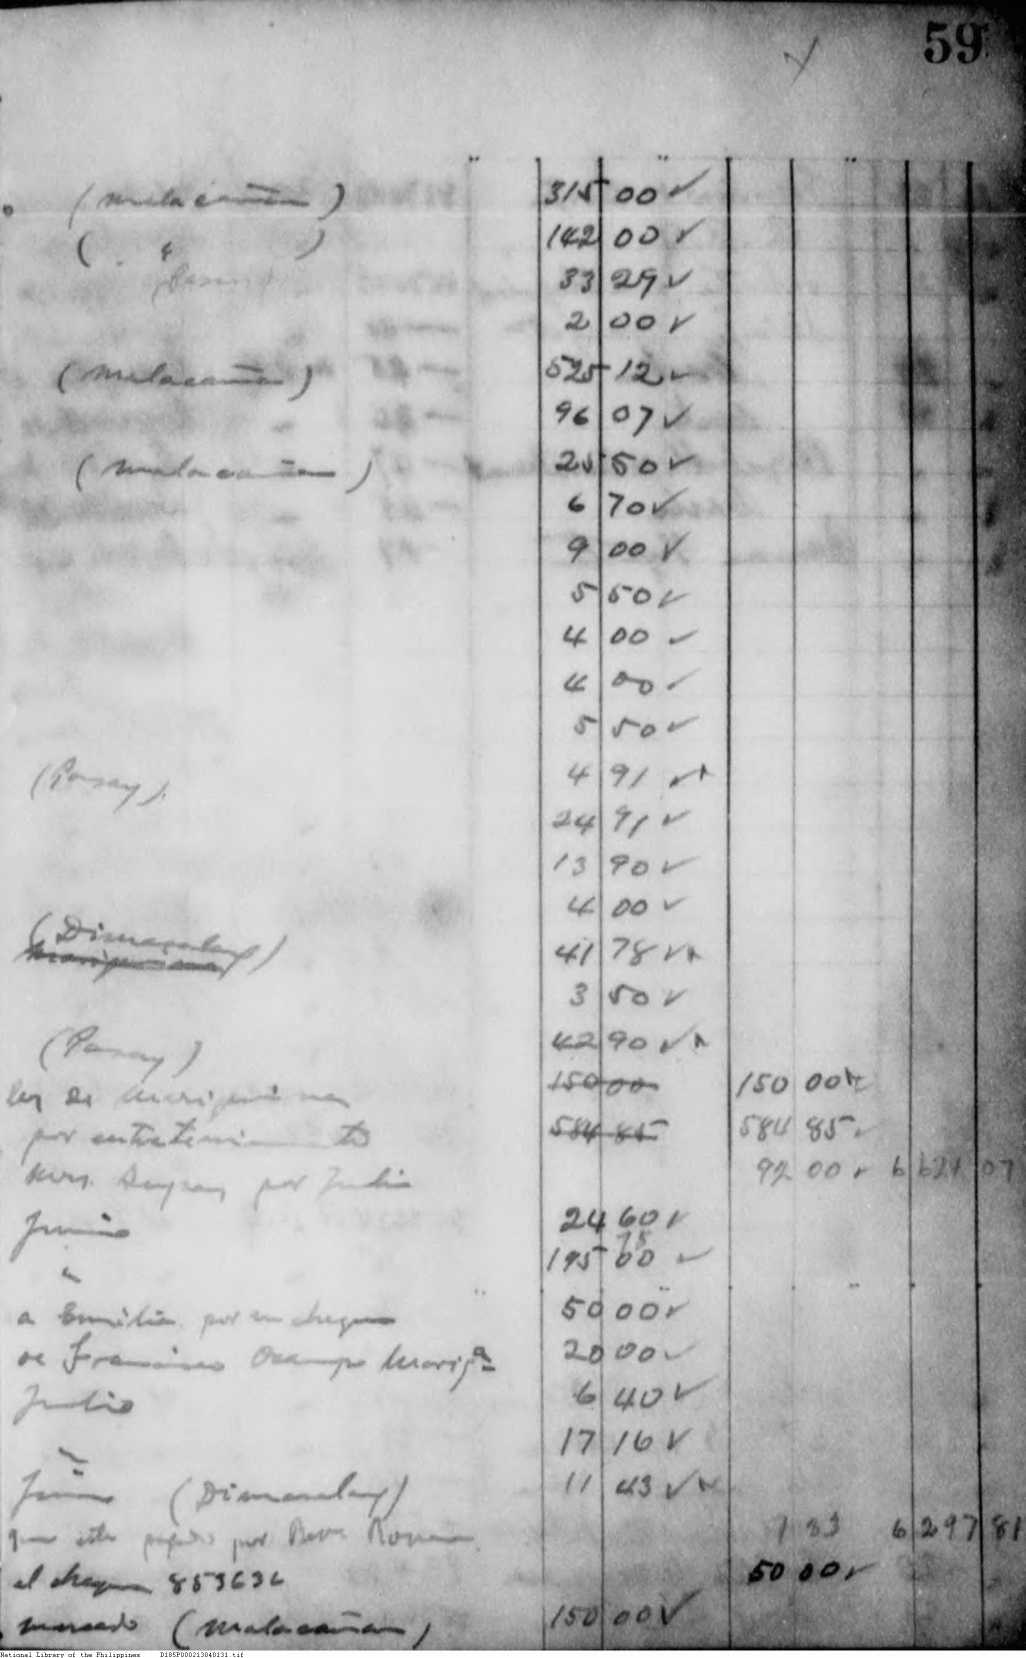 59
(Malacañan) 315 00 ✓
( " ) 142 00 ✓
33 29 ✓
2 00 ✓
(Malacañan) 525 12 ✓
96 07 ✓
(Malacañan) 25 50 ✓
6 70 ✓
9 00 ✓
5 50 ✓
4 00 ✓
4 00 ✓
5 50 ✓
(Pasay) 4 91 ✓
24 91 ✓
13 90 ✓
4 00 ✓
(Dimasalay) 41 78 ✓
3 50 ✓
(Pasay) 42 90 ✓
de 150 00 150 00
por entretenimiento 584 85 584 85 ✓
por Julio 92 00 ✓ 6 621 07
Junio 24 60 ✓
" 195 00 75 ✓
a Emilia por un cheque 50 00 ✓
de Francisco Ocampo Mariqª 20 00 ✓
Julio 6 40 ✓
" 17 16 ✓
Junio (Dimasalay) 11 43 ✓
pagado por 6 297 81
el cheque 853636 50 00 ✓
mercado (Malacañan) 150 00 ✓
National Library of the Philippines D185P000213040131.tif